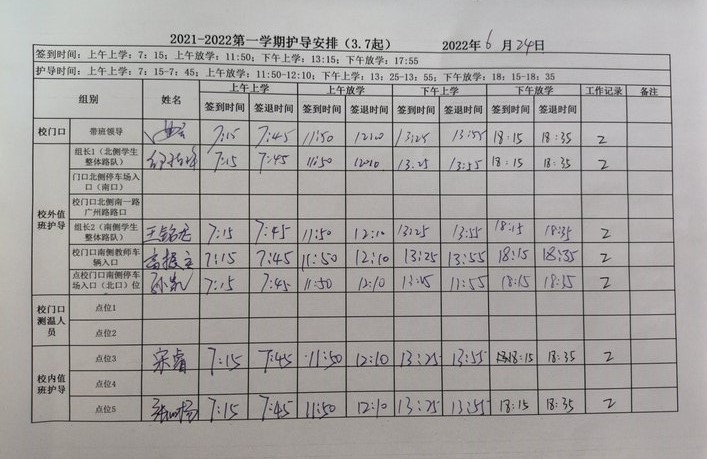 2021-2022第一学期护导安排（3.7起） 2022年6月24日
签到时间：上午上学：7：15；上午放学：11:50；下午上学：13:15；下午放学：17:55
护导时间：上午上学：7：15-7：45；上午放学：11:50-12:10；下午上学：13：25-13：55；下午放学：18：15-18：35
组别 姓名 上午上学 上午放学 下午上学 下午放学 工作记录 备注
签到时间 签退时间 签到时间 签退时间 签到时间 签退时间 签到时间 签退时间
校门口 带班领导 7:15 7:45 11:50 12:10 13:25 13:55 18:15 18:35 2
校外值班护导
组长1（北侧学生
整体路队） 7:15 7:45 11:50 12:10 13.25 13:55 18:15 18:35 2
门口北侧停车场入
口（南口）
校门口北侧南一路
广州路路口
组长2（南侧学生
整体路队） 7:15 7:45 11:50 12:10 13:25 13:55 18:15 18:35 2
校门口南侧教师车
辆入口 7:15 7:45 11:50 12:10 13:25 13:55 18:15 18:35 2
点校门口南侧停车
场入口（北口）位 7:15 7:45 11:50 12:10 13:55 18:15 18:35 2
校门口
测温人
员
点位1
点位2
校内值
班护导
点位3 宋睿 7:15 7:45 11:50 12:10 13:25 13:55 18:15 18:35 2
点位4
点位5 7:15 7:45 11:50 12:10 13:25 13:55 18:15 18:35 2